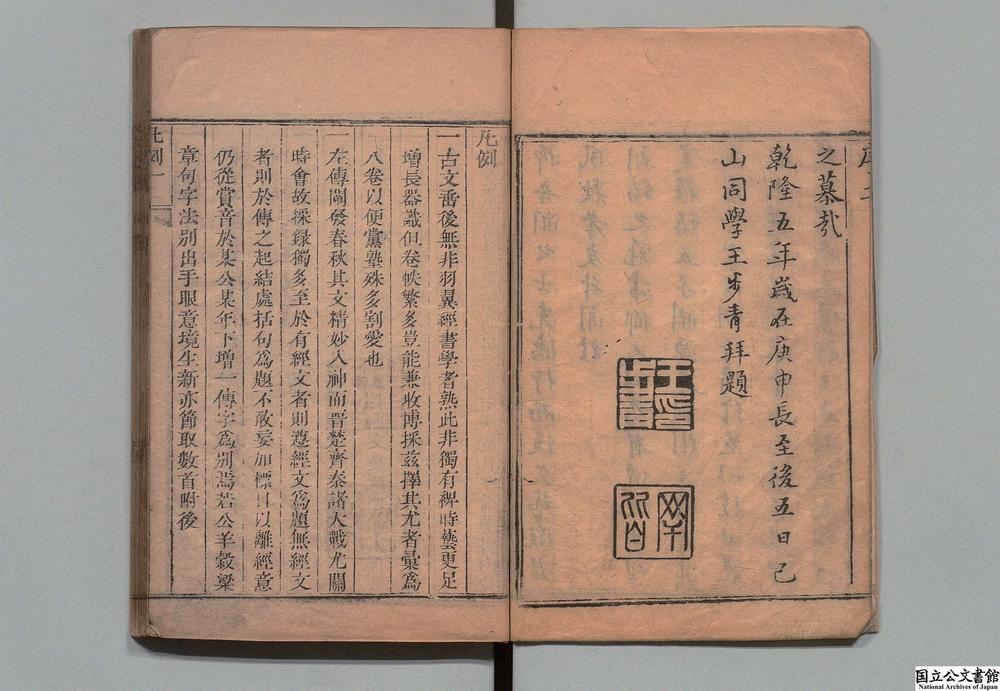 之慕哉
乾隆五年歲在庚申長至後五日己
山同學王步青拜題
王步青印
凡例
一古文番後無非羽翼經書學者熟此非獨有裨時藝更足
增長器識但卷帙繁多豈能兼收博採茲擇其尤者彙爲
八卷以便黨塾殊多割愛也
一左傳闡發春秋其文精妙入神而晋楚齊秦諸大戰尤關
時會故採録獨多至於有經文者則遵經文爲題無經文
者則於傳之起結處括句爲題不敢妄加標目以離經意
仍從賞音於某公某年下增一傳字爲别焉若公羊穀梁
章句字法别出手眼意境生新亦節取數首附後
凡例一
国立公文書館
National Archives of Japan